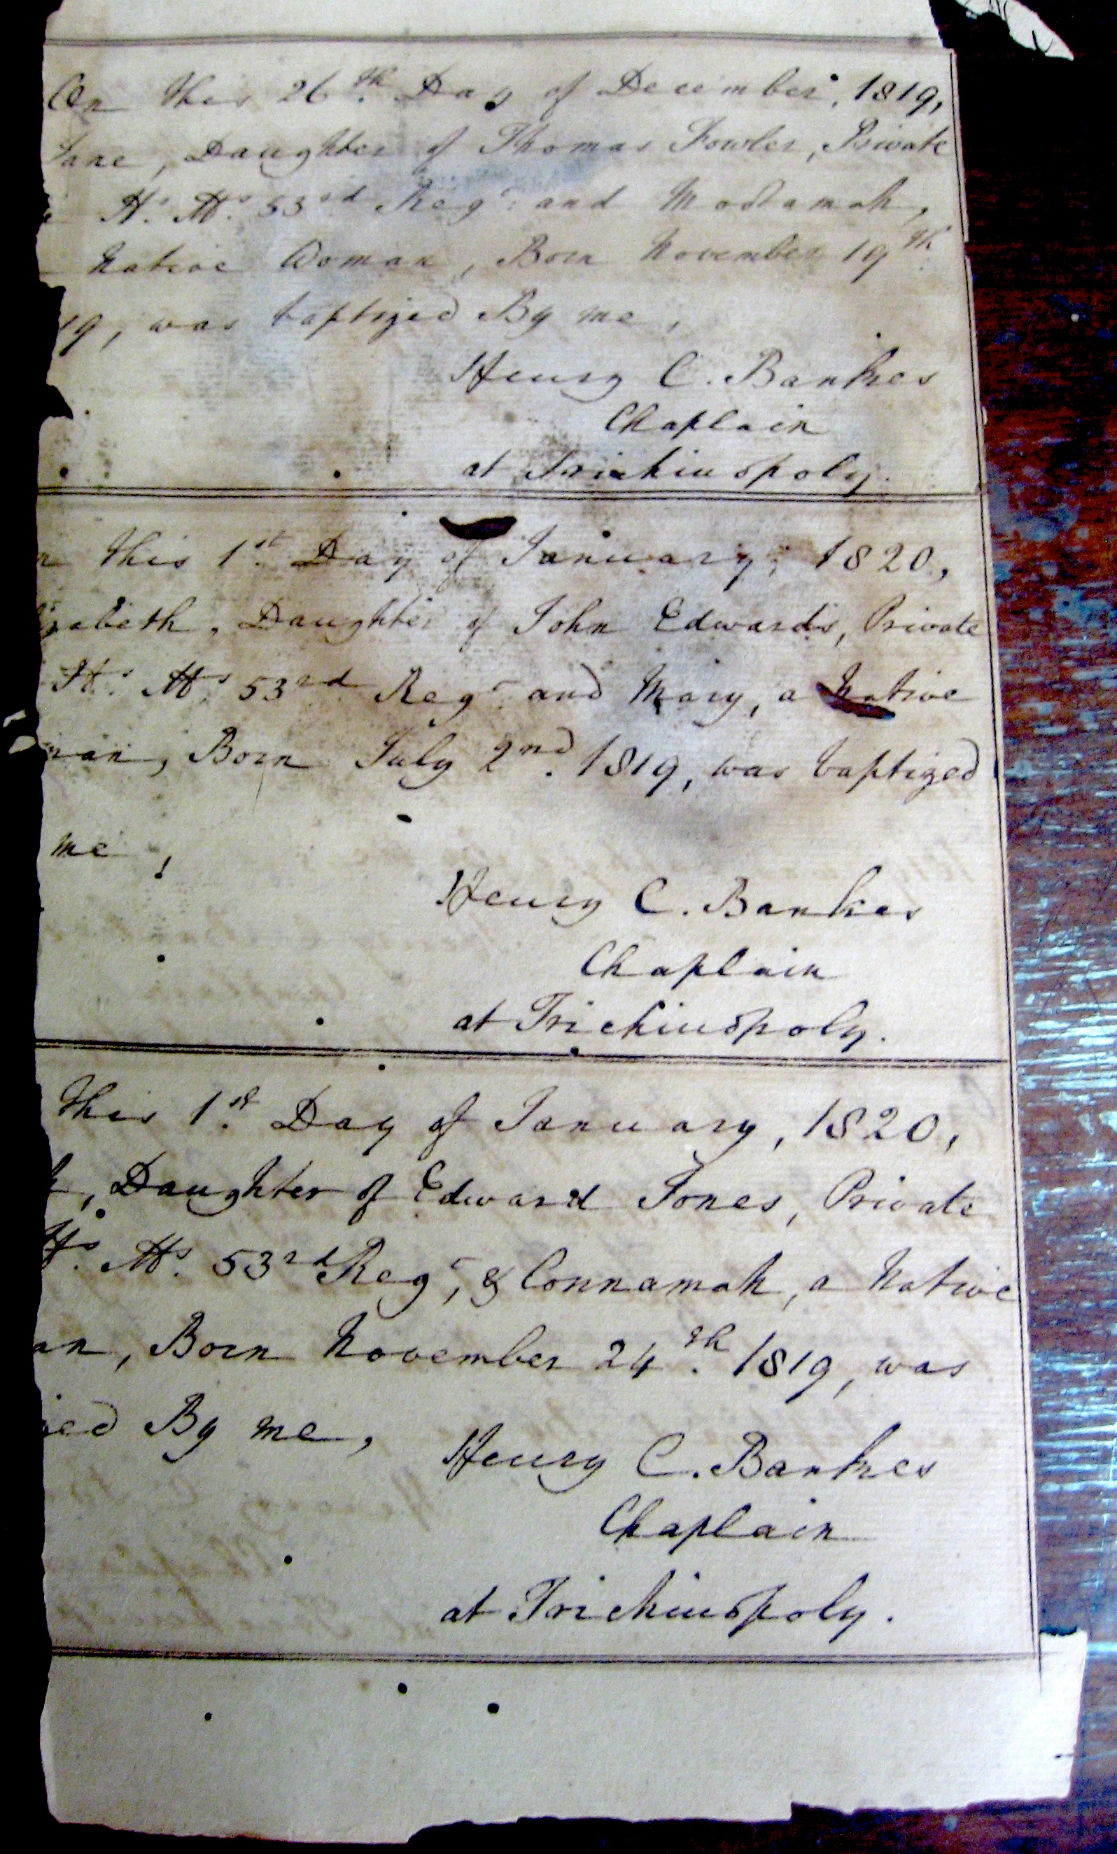 On this 26th Day of December, 1819,
Jane, Daughter of Thomas Fowler, Private
H. Ms. 53rd Regt. and Modamah,
Native Woman, Born November 19th
19, was baptized By me,
Henry C. Bankes
Chaplain
at Trichinopoly.
n this 1st Day of January, 1820,
zabeth, Daughter of John Edwards, Private
Hs. Ms. 53rd Regt and Mary, a Native
man, Born July 2nd. 1819, was baptized
me,
Henry C. Bankes
Chaplain
at Trichinopoly.
this 1st Day of January, 1820,
h, Daughter of Edward Jones, Private
Hs. Ms. 53rd Regt, & Connamah, a Native
an, Born November 24th. 1819, was
zed By me,
Henry C. Bankes
Chaplain
at Trichinopoly.